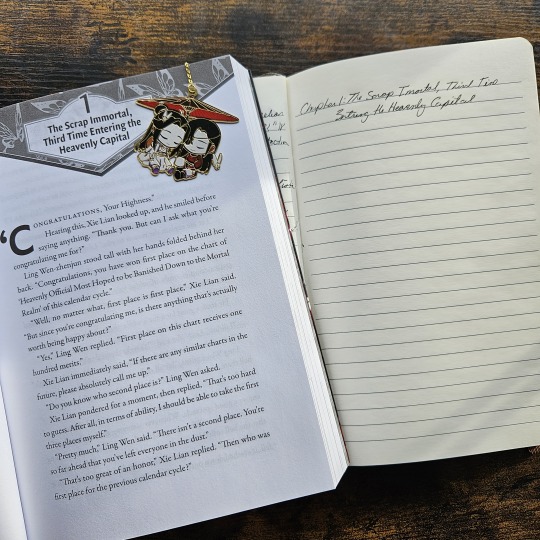 1
The Scrap Immortal,
Third Time Entering the
Heavenly Capital
"CONGRATULATIONS, Your Highness."
Hearing this, Xie Lian looked up, and he smiled before
saying anything. "Thank you. But can I ask what you're
congratulating me for?"
Ling Wen-zhenjun stood tall with her hands folded behind her
back. "Congratulations, you have won first place on the chart of
'Heavenly Official Most Hoped to be Banished Down to the Mortal
Realm' of this calendar cycle."
"Well, no matter what, first place is first place," Xie Lian said.
"But since you're congratulating me, is there anything that's actually
worth being happy about?"
"Yes," Ling Wen replied. "First place on this chart receives one
hundred merits."
Xie Lian immediately said, "If there are any similar charts in the
future, please absolutely call me up."
"Do you know who second place is?" Ling Wen asked.
Xie Lian pondered for a moment, then replied, "That's too hard
to guess. After all, in terms of ability, I should be able to take the first
three places myself."
"Pretty much," Ling Wen said. "There isn't a second place. You're
so far ahead that you've left everyone in the dust."
"That's too great of an honor," Xie Lian replied. "Then who was
first place for the previous calendar cycle?"
Chapter 1: The Scrap Imortal, Third Time
Entering the Heavenly Capital